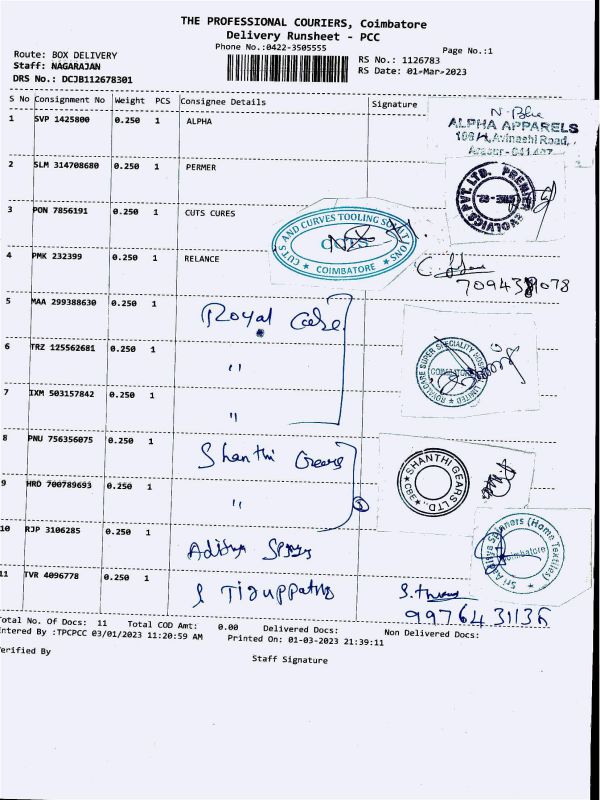 THE PROFESSIONAL COURIERS, Coimbatore
Delivery Runsheet - PCC
Phone No.:0422-3505555
Page No.:1
Route: BOX DELIVERY
Staff: NAGARAJAN
DRS No.: DCJB112678301
RS No.: 1126783
RS Date: 01-Mar-2023
S No Consignment No Weight PCS Consignee Details Signature
1 SVP 1425800 0.250 1 ALPHA
ALPHA APPARELS
Avinashi Road,
2 SLM 314708680 0.250 1 PERMER
PREMIER EVOLVICS PVT. LTD.
3 PON 7856191 0.250 1 CUTS CURES
CUTS AND CURVES TOOLING SOLUTIONS
COIMBATORE
4 PMK 232399 0.250 1 RELANCE
5 MAA 299388630 0.250 1 Royal Care
6 TRZ 125562681 0.250 1 "
ROYALCARE SUPER SPECIALITY HOSPITAL LIMITED
COIMBATORE
7 IXM 503157842 0.250 1 "
8 PNU 756356075 0.250 1 Shanthi Gears
SHANTHI GEARS LTD.,
CBE
9 HRD 700789693 0.250 1 "
10 RJP 3106285 0.250 1 Aditya
Sri Aditya Spinners (Home Textiles)
Coimbatore
11 TVR 4096778 0.250 1
9976431136
Total No. Of Docs: 11 Total COD Amt: 0.00 Delivered Docs: Non Delivered Docs:
Entered By :TPCPCC 03/01/2023 11:20:59 AM Printed On: 01-03-2023 21:39:11
Verified By
Staff Signature